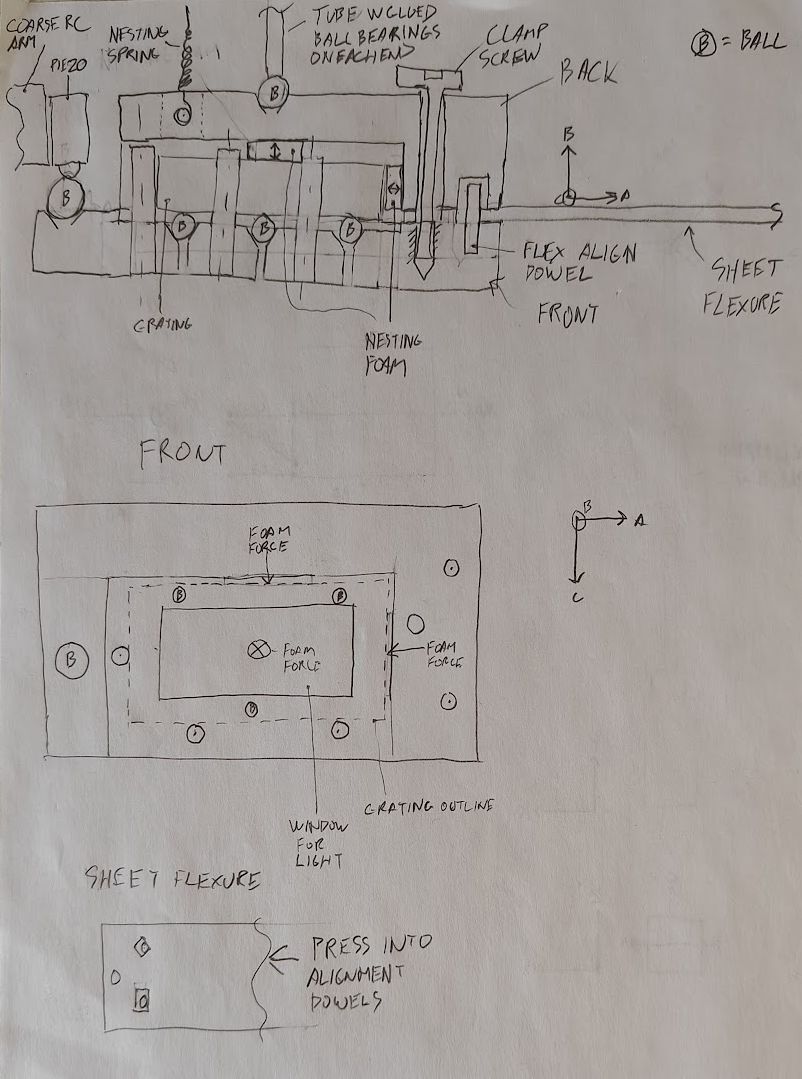 COARSE RC
ARM
PIEZO
NESTING
SPRING
TUBE W GLUED
BALL BEARINGS
ON EACH END
CLAMP
SCREW
BACK
Ⓑ = BALL
B
B
B
B
B
B
C
A
FLEX ALIGN
DOWEL
SHEET
FLEXURE
FRONT
GRATING
NESTING
FOAM
FRONT
FOAM
FORCE
B
A
C
B
B
B
FOAM
FORCE
FOAM
FORCE
B
GRATING OUTLINE
WINDOW
FOR
LIGHT
SHEET FLEXURE
PRESS INTO
ALIGNMENT
DOWELS